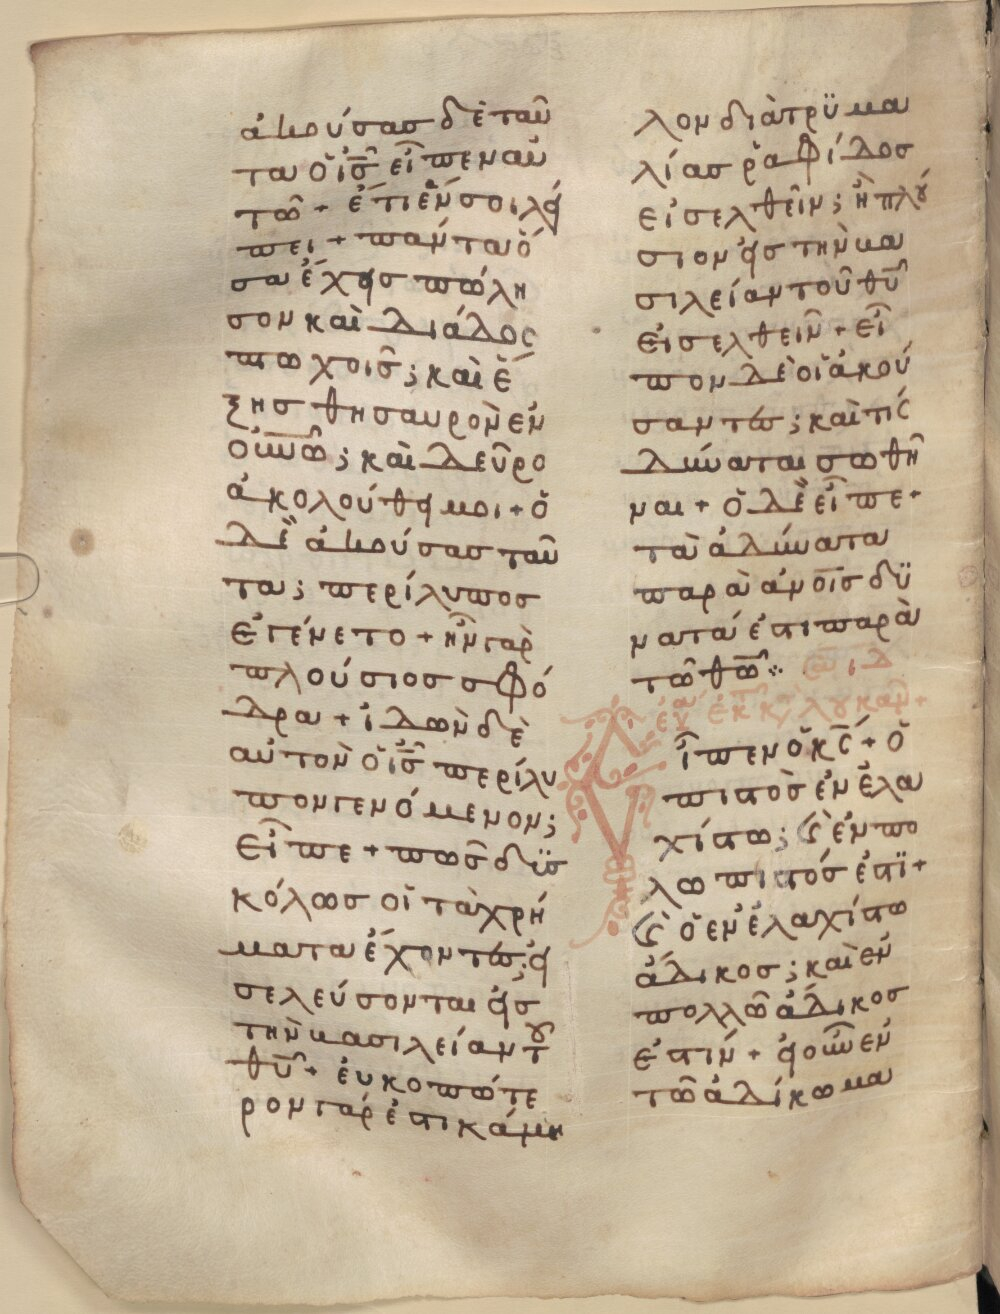 ἀκούσας δὲ ταῦ
τα ὁ ἰς̅ εἶπεν αὐ
τῶ + ἔτι ἕν σοι λεί
πει + πάντα ὅ
σα ἔχεις πώλη
σον καὶ διάδος
πτωχοῖς ; καὶ ἕ
ξης θησαυρὸν ἐν
οὐνω̅ ; καὶ δεῦρο
ἀκολούθει μοι + ὁ
δὲ ἀκούσας ταῦ
τα ; περίλυπος
ἐγένετο + ἦν γὰρ
πλούσιος σφό
δρα + ἰδὼν δὲ
αὐτὸν ὁ ἰς̅ περίλυ
πον γενόμενον ;
εἶπε + πῶς δϋσ
κόλως οἱ τὰ χρή
ματα ἔχοντες ; εἰ
σελεύσονται εἰς
τὴν βασιλείαν τοῦ
θυ̅ + ἐυκοπώτε
ρον γάρ ἐστι κάμη
λον διὰ τρϋμα
λίας ῥαφίδος
εἰσελθεῖν ; ἢ πλού
σιον εἰς τὴν βα
σιλείαν τοῦ θυ̅
εἰσελθεῖν + εἶ
πον δὲ οἱ ἀκού
σαντες ; καὶ τίς
δύναται σωθῆ
ναι + ὁ δὲ εἶπε +
τὰ ἀδύνατα
παρὰ ἀνοις̅ δϋ
νατά ἐστι παρὰ
τῶ θω̅ ⁘
εὐα ἐκ τ κ, λουκαν +
ἶπεν ὁ κς̅ + ὁ
πιστὸς ἐν ἐλα
χίστω ; ϛ ἐν πο
λῶ πιστός ἐστϊ +
ϛ ὁ ἐν ἐλαχίστω
ἄδικος ; καὶ ἐν
πολλῶ ἄδικος
ἐστίν + εἰ οὖν ἐν
τῶ ἀδίκω μα